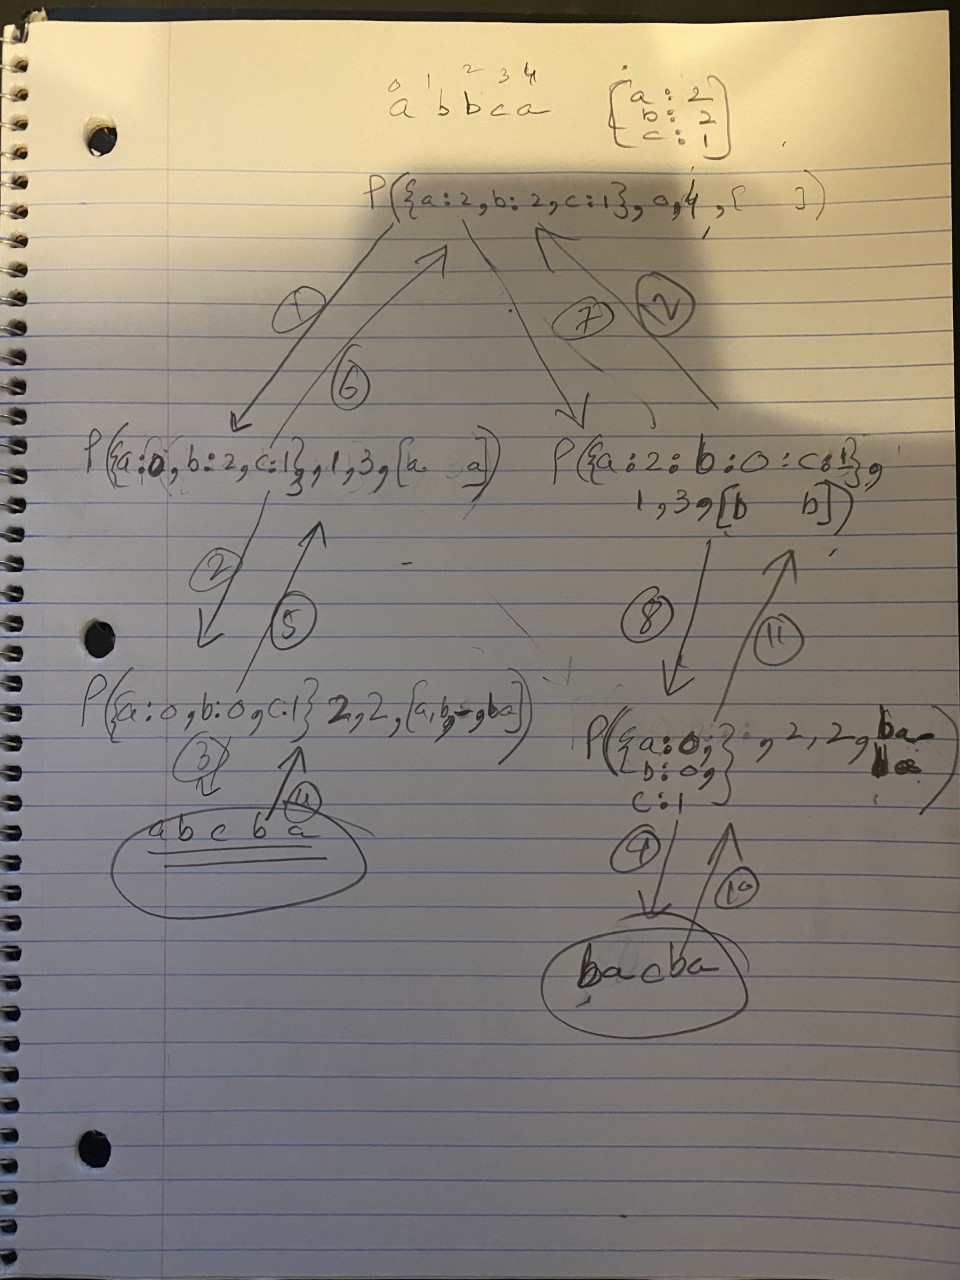 0 1 2 3 4
a b b c a
[a : 2
b : 2
c : 1]
P({a:2, b:2, c:1}, 0, 4, [ ])
1
7
12
6
P({a:0, b:2, c:1}, 1, 3, [a a])
P({a:2: b:0: c:1},
1, 3, [b b])
2
5
8
11
P({a:0, b:0, c:1} 2, 2, [a, b, -, ba])
P({a:0, } , 2, 2, ba-
b:0,
c:1
3
4
a b c b a
9
10
bacba